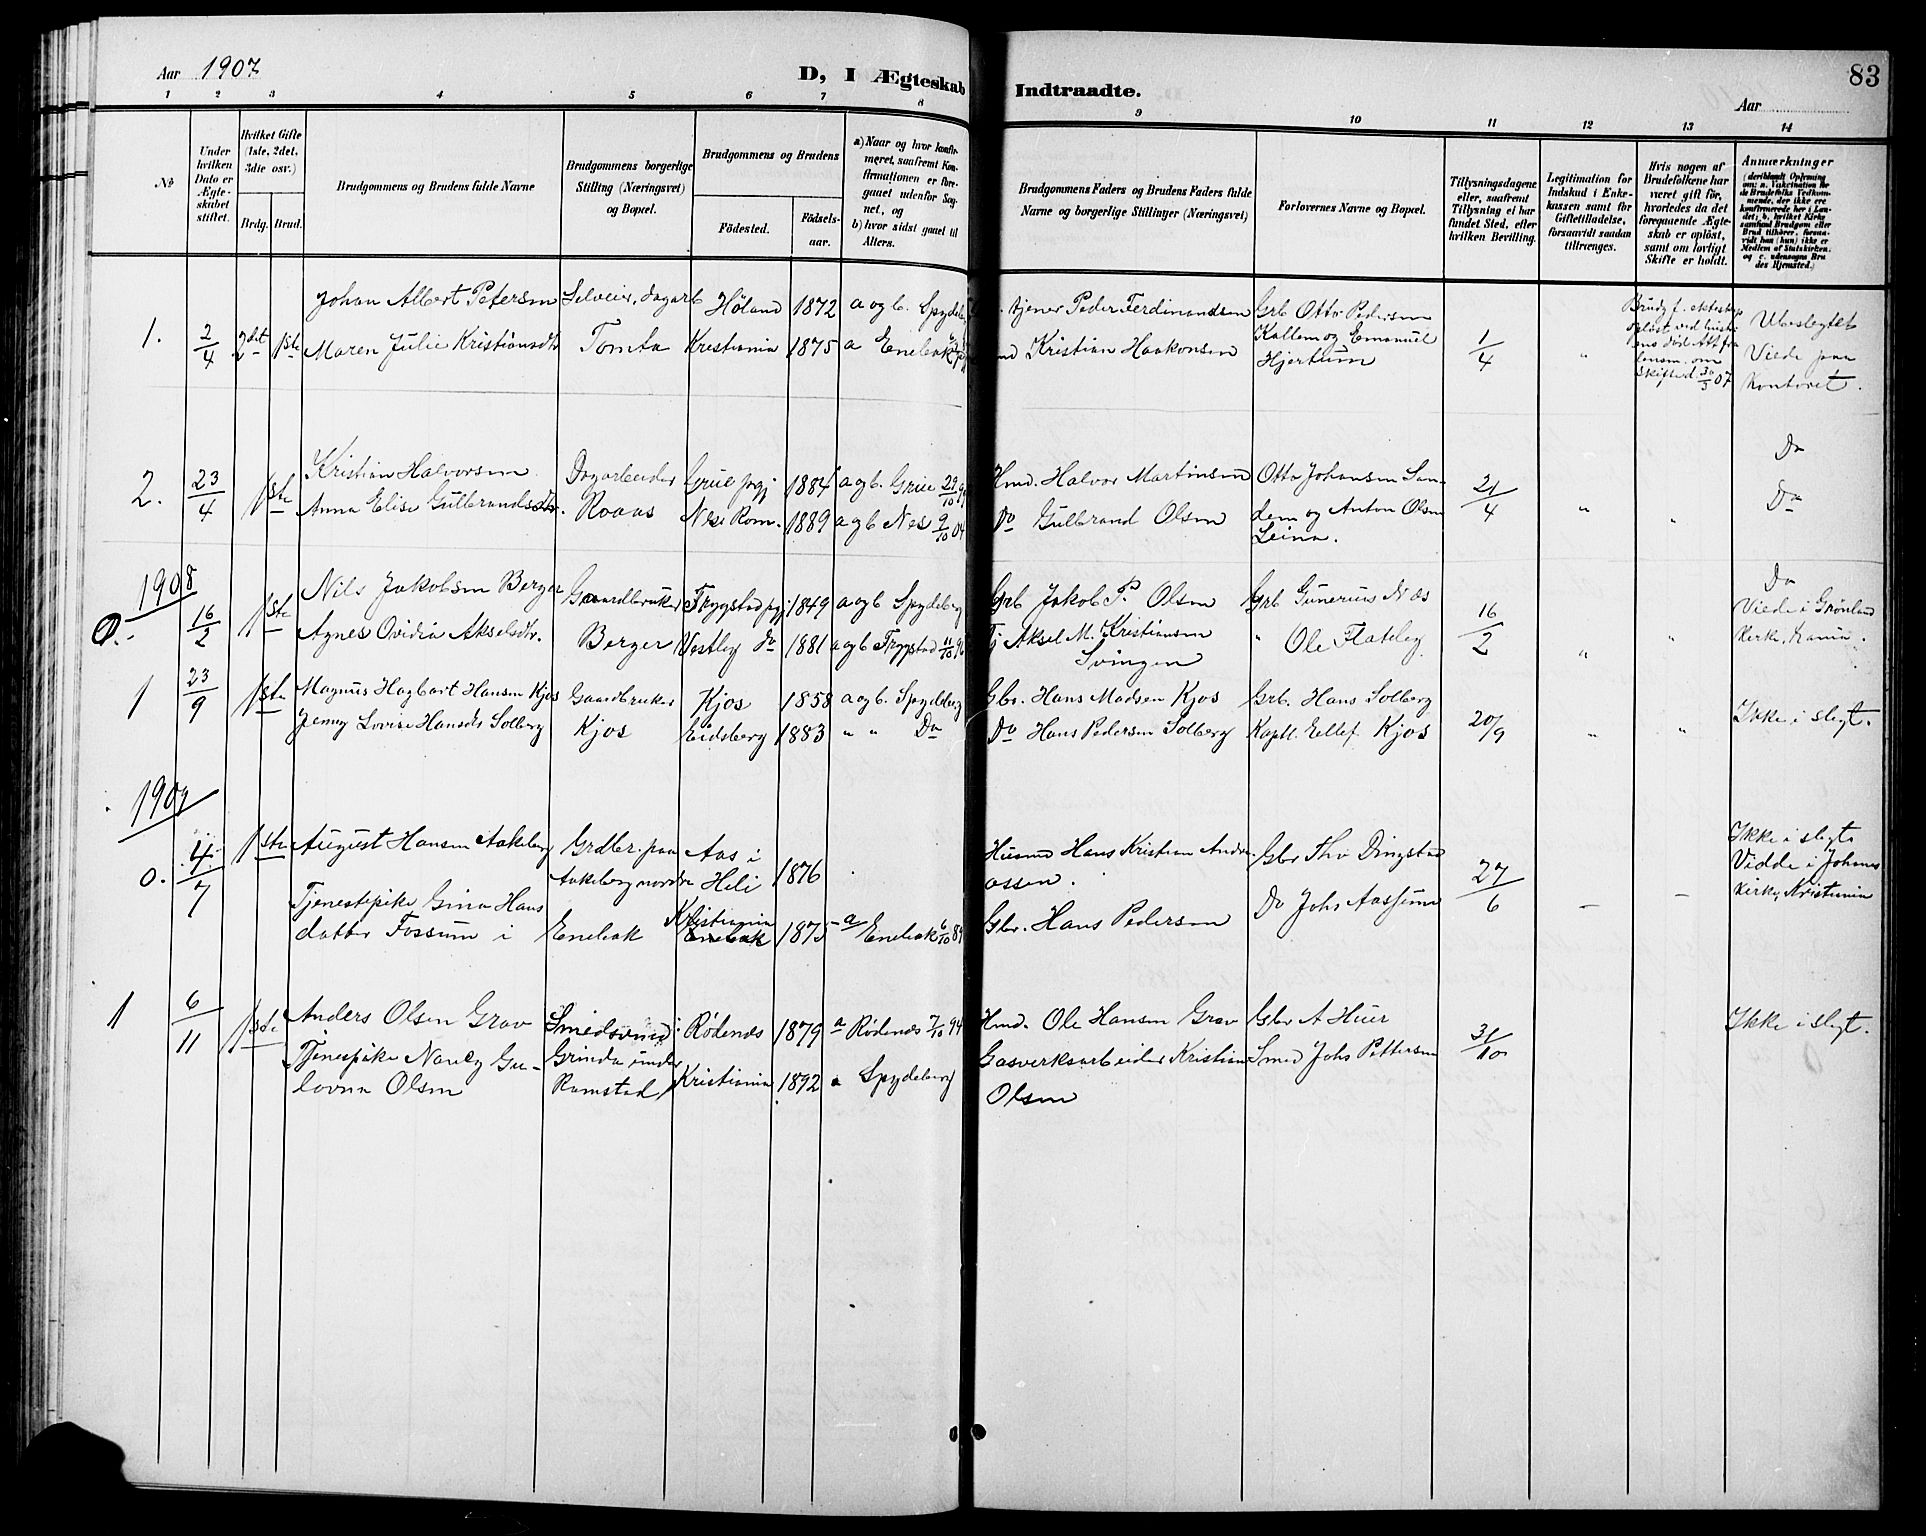 Aar 1907
D, I Ægteskab Indtraadte.
83
Aar
1 2 3 4 5 6 7 8 9 10 11 12 13 14
№
Under hvilken Dato er Ægteskabet stiftet.
Hvilket Gifte (1ste, 2det, 3die osv.)
Brdg. Brud.
Brudgommens og Brudens fulde Navne
Brudgommens borgerlige Stilling (Næringsvei) og Bopæl.
Brudgommens og Brudens
Födested.
Födsels-aar.
a) Naar og hvor konfirmeret, saafremt Konfirmationen er foregaaet udenfor Sognet, og
b) hvor sidst gaaet til Alters.
Brudgommens Faders og Brudens Faders fulde Navne og borgerlige Stillinger (Næringsvei)
Forlovernes Navne og Bopæl.
Tillysningsdagene eller, saafremt Tillysning ei har fundet Sted, efter hvilken Bevilling.
Legitimation for Indskud i Enkekassen samt for Giftetilladelse, forsaavidt saadan tiltrænges.
Hvis nogen af Brudefolkene har været gift før, hvorledes da det foregaaende Ægteskab er oplöst, samt om lovligt Skifte er holdt.
Anmærkninger
1. 2/4 2det 1ste
Johan Albert Petersen
Maren Julie Kristiansdtr
Selveier, dagarb
Tomta
Høland 1872 a og b. Spydeberg
Kristiania 1875 a Enebak
tjener Peder Ferdinandsen
Kristian Haakonsen
Grb Otto Pedersen
Kallem og Emanuel
Hjertum
1/4 "
Brudg f. ekteskap
opløst ved hustruens død
skifte d. 30/3 07
Ubeslegtet
Viede paa
Kontoret.
2. 23/4 1ste
Kristian Halvorsen
Anna Elise Gulbrandsdtr.
Dagarbeider
Roaas
Grue prgj 1884 a og b. Grue 29/10 99
Nes i Rom. 1889 a og b Nes 9/10 04
Hmd. Halvor Martinsen
Do Gulbrand Olsen
Otto Johansen San-
dem og Anton Olsen
Leina.
21/4 " "
Do
Do
1908
0. 16/2 1ste
Nils Jakobsen Berger
Agnes Ovidia Akselsdtr.
Gaardbruker
Berger
Trygstad prgj. 1849 a og b Spydeberg
Vestby do 1881 a og b Trygstad 11/10 96
Grb Jakob P. Olsen
Tj Aksel M. Kristiansen
Svingen
Grb Gunerius Næs
" Ole Flateby
16/2 " "
Do
Viede i Grønland
Kirke, Kania.
1 23/9 1ste
Magnus Hagbart Hansen Kjos
Jenny Lovise Hansdtr Solberg
Gaardbruker
Kjos
Kjos 1858 a og b. Spydeberg
Eidsberg 1883 " " Do
Gbr. Hans Madsen Kjos
Do Hans Pedersen Solberg
Grb. Hans Solberg
Kaptl. Ellef Kjos
20/9 " "
Ikke i slegt.
1909
0. 4/7 1ste
August Hansen Aakeberg
Tjenestepike Gina Hans
datter Fossum i
Grdbr. paa
Aakeberg nordre
Enebak
Aas i
Heli 1876
Kristiania
Enebak 1875 - a Enebak 6/10 89
Husmd Hans Kristian Andre
assen.
Gbr. Hans Pedersen
Gbr Thv Dingstad
Do Johs Aassum
27/6 – –
Ikke i slegt
Vidde i Johanes
Kirke, Kristiania
1 6/11 1ste
Anders Olsen Grav
Tjenespike Nancy Gu-
lovna Olsen
Smedsvend
Grinda under
Ramstad
Rødenes 1879 a Rødenes 7/10 94
Kristiania 1892 a Spydeberg
Hmd. Ole Hansen Grav
Gasverksarbeider Kristian
Olsen
Gbr A Huer
Smed Johs Pettersen
31/10
Ikke i slegt.